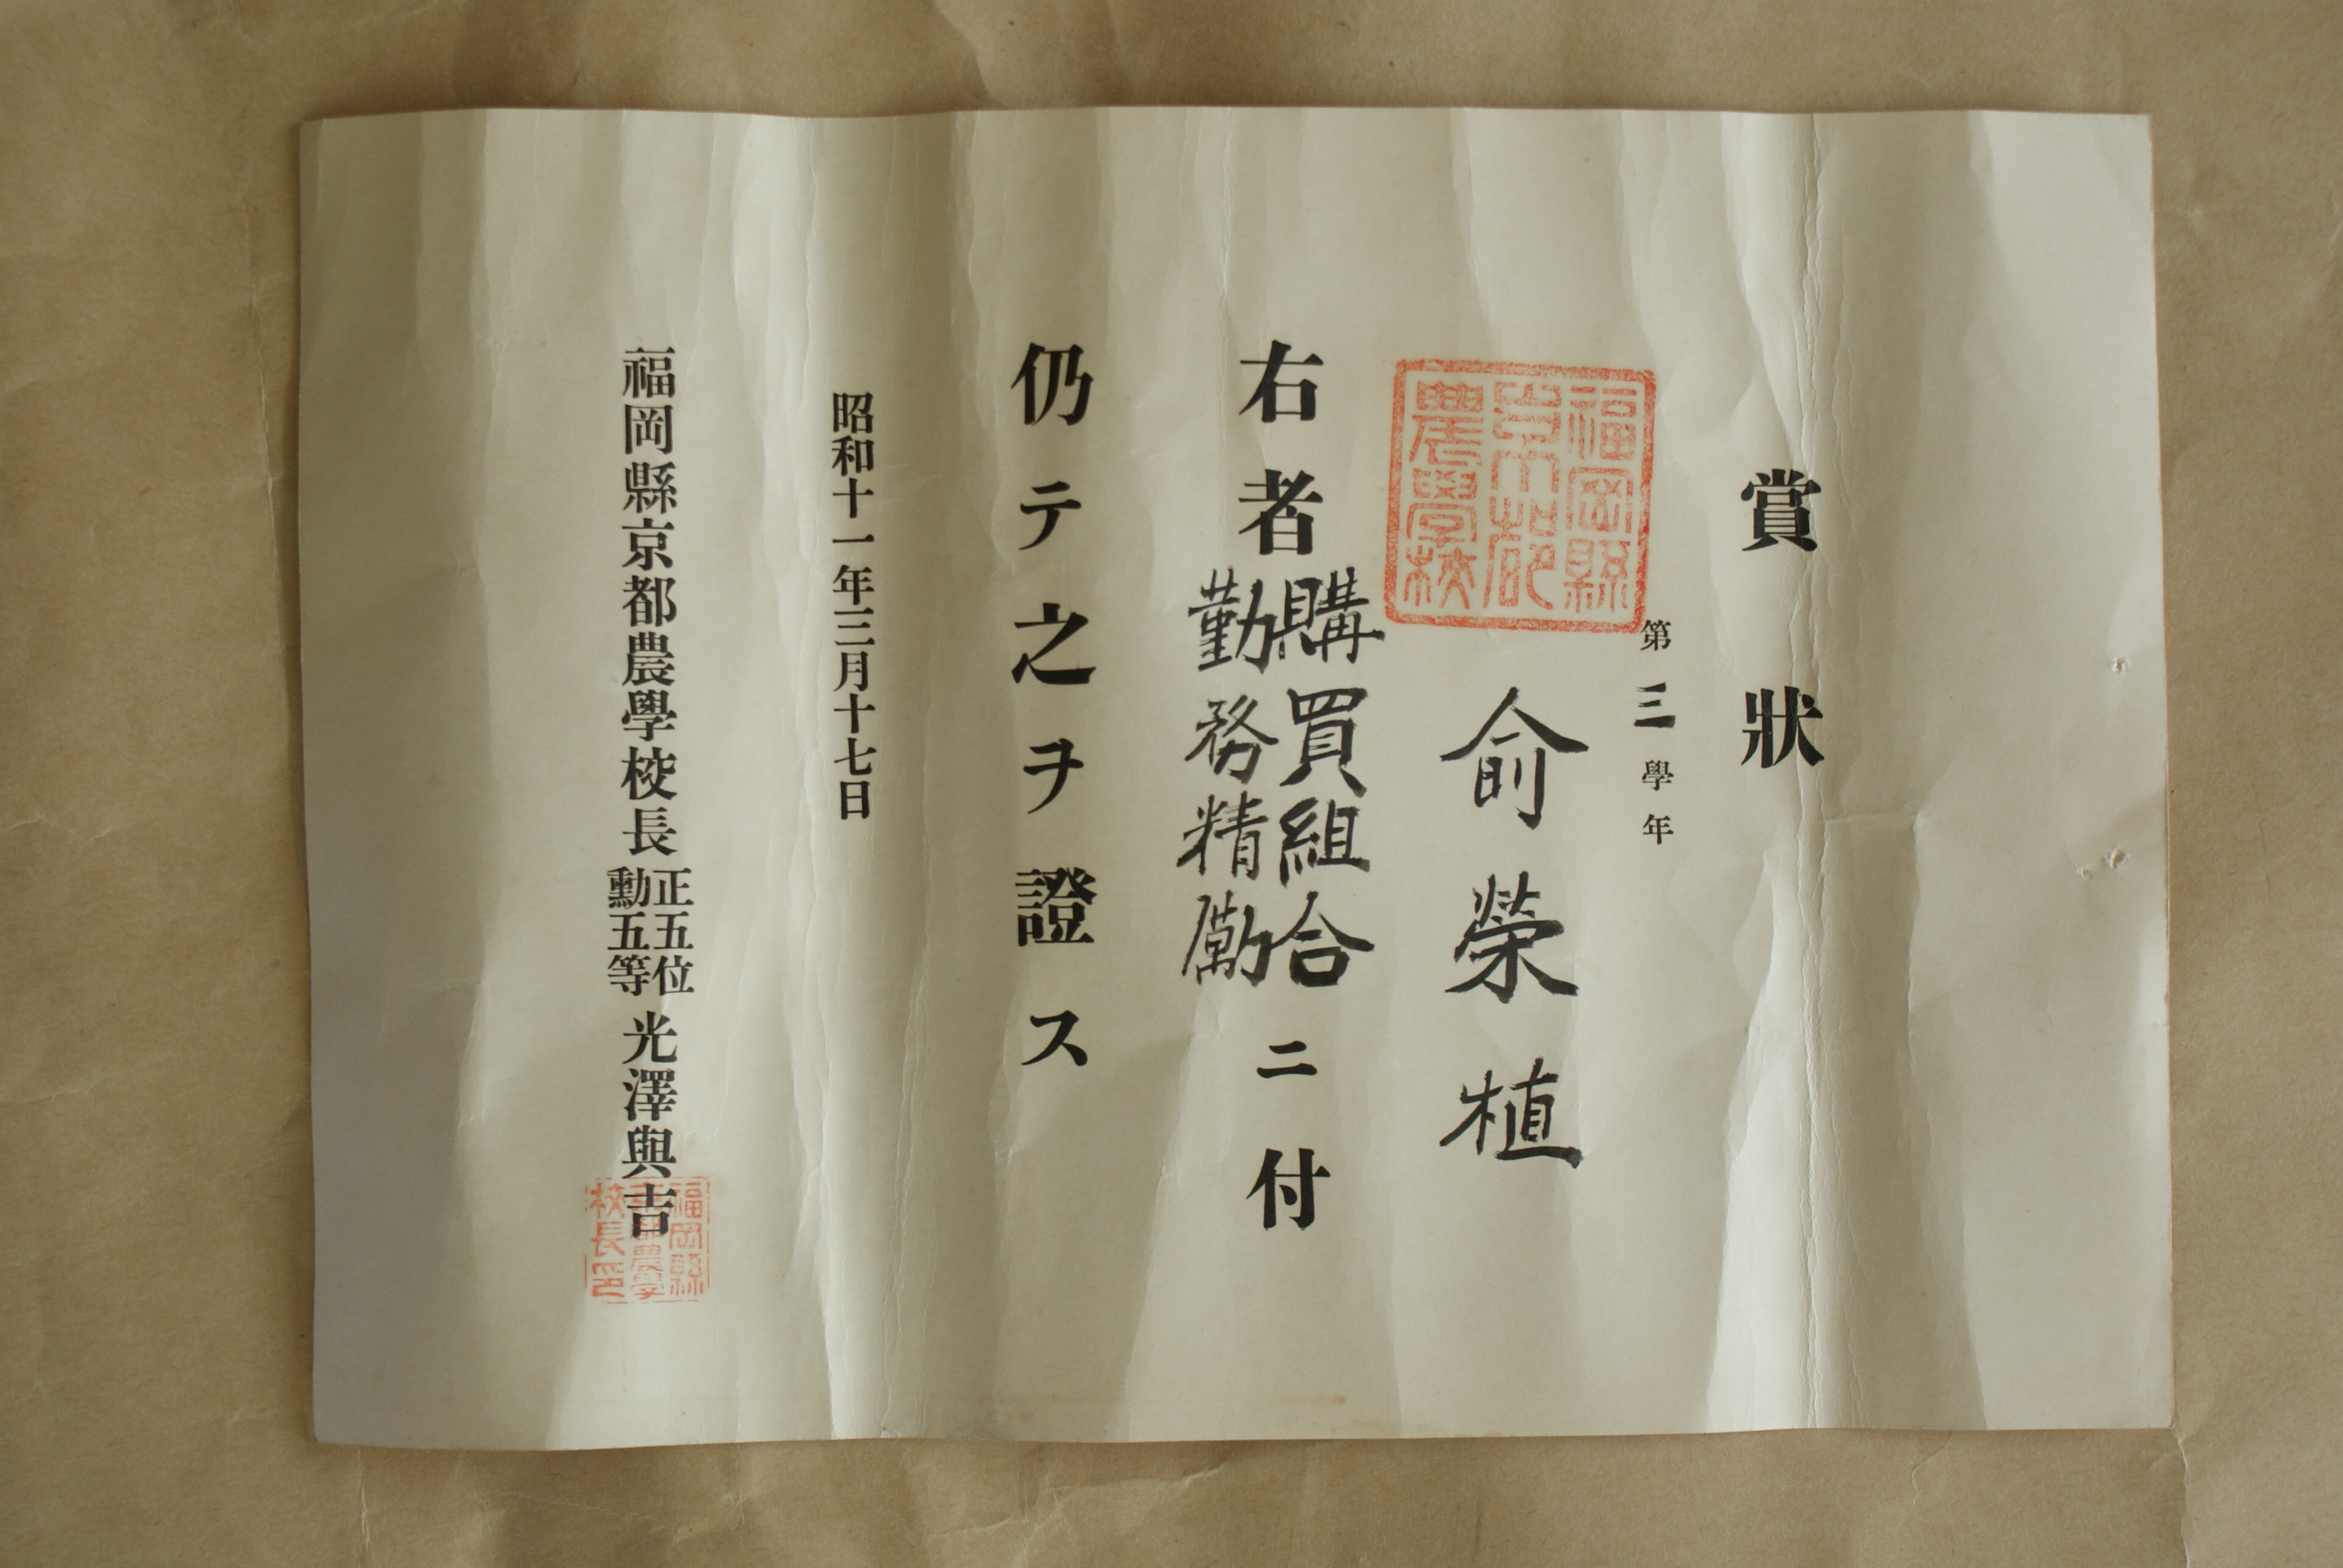 賞狀
第三學年
俞榮植
福岡縣
京都
農學校
右者購買組合勤務精勵ニ付
仍テ之ヲ證ス
昭和十一年三月十七日
福岡縣京都農學校長正五位勳五等光澤與吉
福岡縣
京都農學
校長印